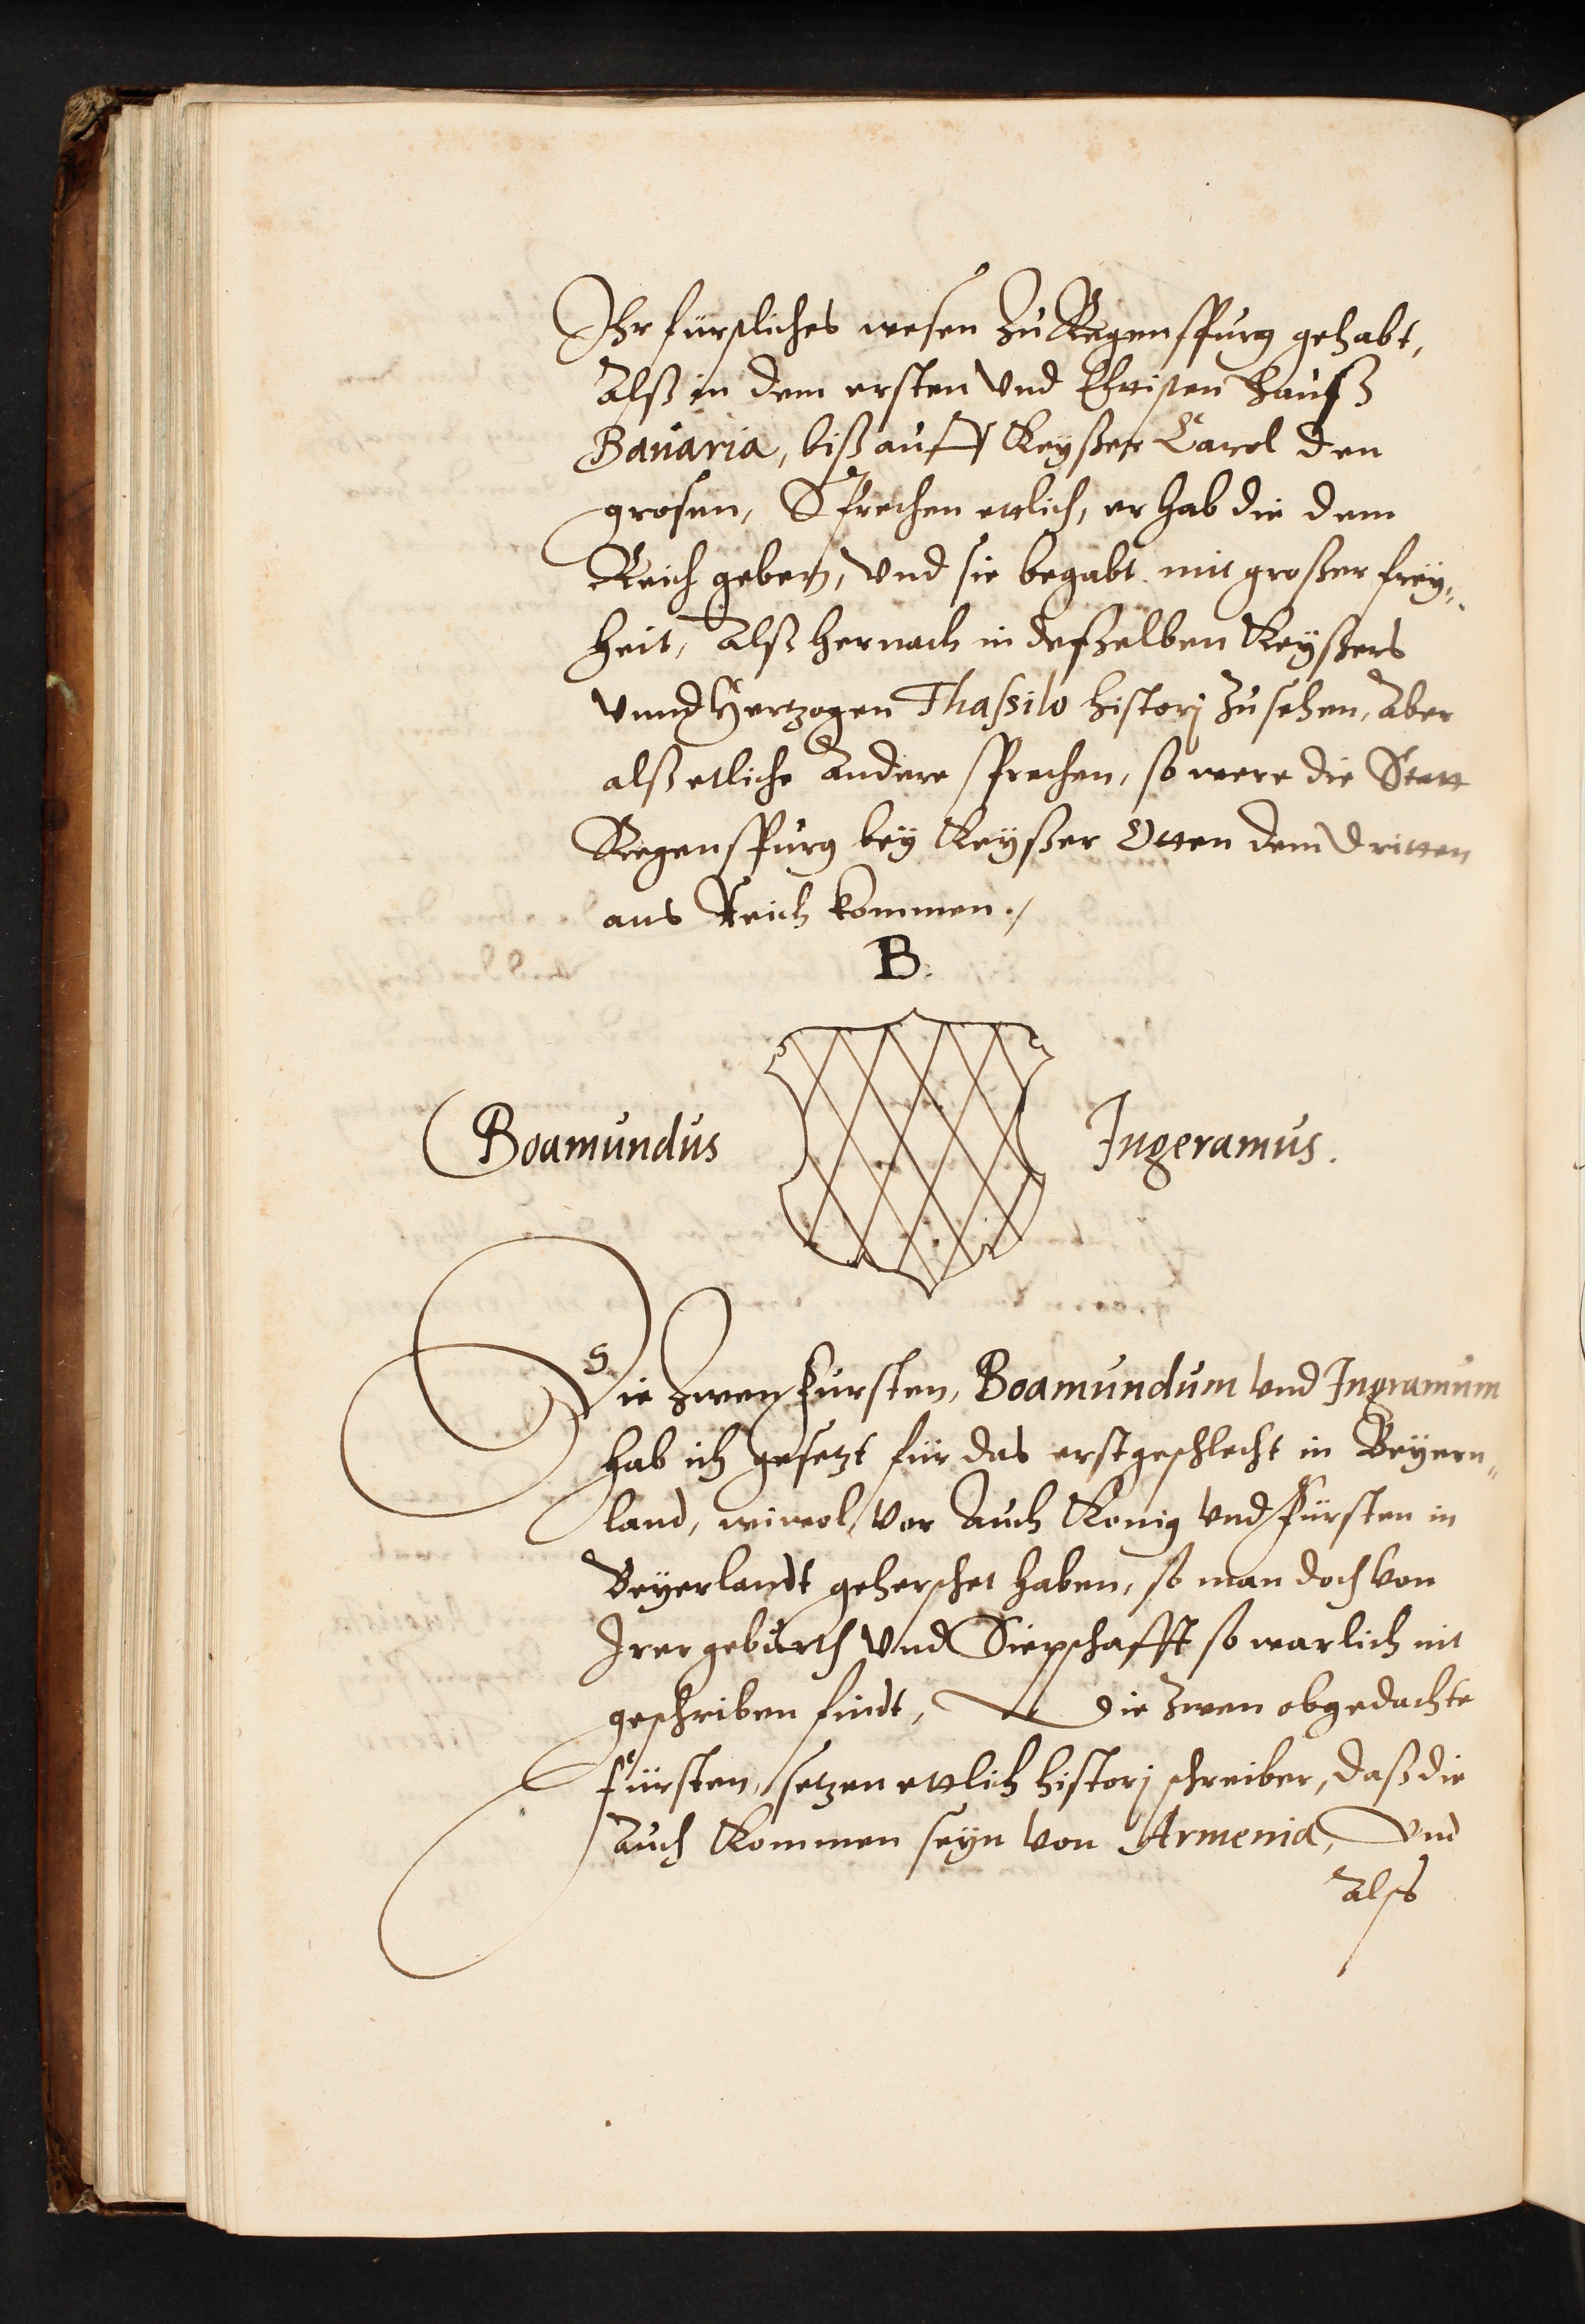 Ihr fürstliches wesen zu Regenspurg gehabt,
Alß in dem ersten und Eltisten hauß
Bauaria, biß auff Keyßer Carol den
grosen, Sprechen ettlich, er hab die dem
Reich geben, und sie begabt mit großer frey„
heit, Alß hernach in deßzelben Keyßers
unnd Hertzogen Thassilo historj zu sehen, Aber
alß etliche Andere sprechen, so were die Statt
Regenspurg bey Keyßer Otten dem dritten
ans Reich kommen ./
B.
Boamundus
Ingeramus.
Die zwen Fürsten, Boamundum und Ingramum
hab ich gesetzt für das erst geschlecht in Beyern„
land, wiwol, vor Auch Konig und Fürsten in
Beyerlandt geherschet haben, so man doch von
Irer geburth und Siepschafft so warlich nit
geschriben findt, die zwen obgedachte
fürsten, setzen ettlich historj schreiber, daß die
Auch Kommen seyn von Armenia, und
Alß